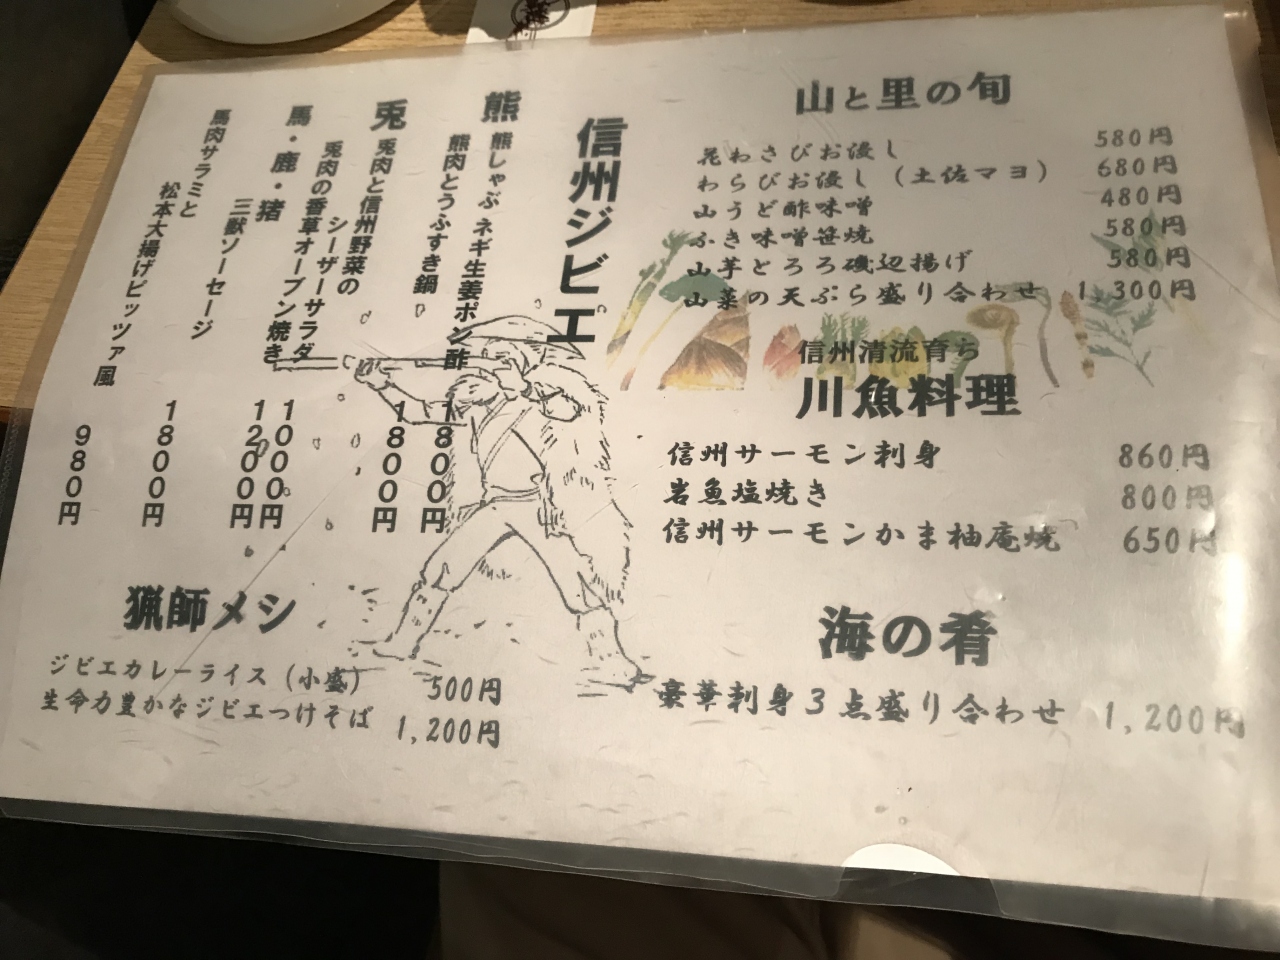 山と里の旬
花わさびお浸し 580円
わらびお浸し（土佐マヨ） 680円
山うど酢味噌 480円
ふき味噌笹焼 580円
山芋とろろ磯辺揚げ 580円
山菜の天ぷら盛り合わせ 1,300円
信州清流育ち
川魚料理
信州サーモン刺身 860円
岩魚塩焼き 800円
信州サーモンかま柚庵焼 650円
海の肴
豪華刺身３点盛り合わせ 1,200円
信州ジビエ
熊
熊しゃぶ ネギ生姜ポン酢 １８００円
熊肉とうふすき鍋 １８００円
兎
兎肉と信州野菜の
シーザーサラダ １０００円
兎肉の香草オーブン焼き １２００円
馬・鹿・猪
三獣ソーセージ １８００円
馬肉サラミと
松本大揚げピッツァ風 ９８０円
猟師メシ
ジビエカレーライス（小盛） 500円
生命力豊かなジビエつけそば 1,200円